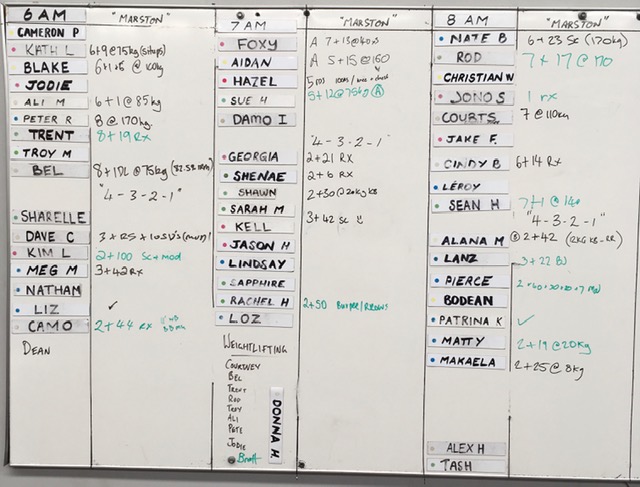 6 AM "MARSTON"
CAMERON P
KATH L 6+9@75kg (situps)
BLAKE @ 100kg
JODIE
ALI M 6+1@85kg
PETER R 8@170kg
TRENT 8+19 Rx
TROY M
BEL 8+1DL@75kg
"4-3-2-1"
SHARELLE
DAVE C
KIM L 2+100 Sc+mod
MEG M 3+42 Rx
NATHAN
LIZ ✓
CAMO 2+44 RX
DEAN
7 AM "MARSTON"
FOXY A 7+13@
AIDAN A 5+15@160
HAZEL
SUE H 5+12@75kg A
DAMO I
"4-3-2-1"
GEORGIA 2+21 RX
SHENAE 2+6 RX
SHAWN 2+30@20kg KB
SARAH M
KELL 3+42 SC
JASON H
LINDSAY
SAPPHIRE
RACHEL H 2+50
LOZ
WEIGHTLIFTING
COURTNEY
BEL
TRENT
ROD
TROY
ALI
PETE
JODIE
Brett
DONNA H.
8 AM "MARSTON"
NATE B 6+23 Sc (170kg)
ROD 7+17@170
CHRISTIAN W
JONO S 1 rx
COURTS 7@110kg
JAKE F.
CINDY B 6+14 RX
LEROY
SEAN H 7+1@140
"4-3-2-1"
ALANA M 2+42
LANZ 3+22
PIERCE
BODEAN
PATRINA K ✓
MATTY 2+19@20kg
MAKAELA 2+25@8kg
ALEX H
TASH